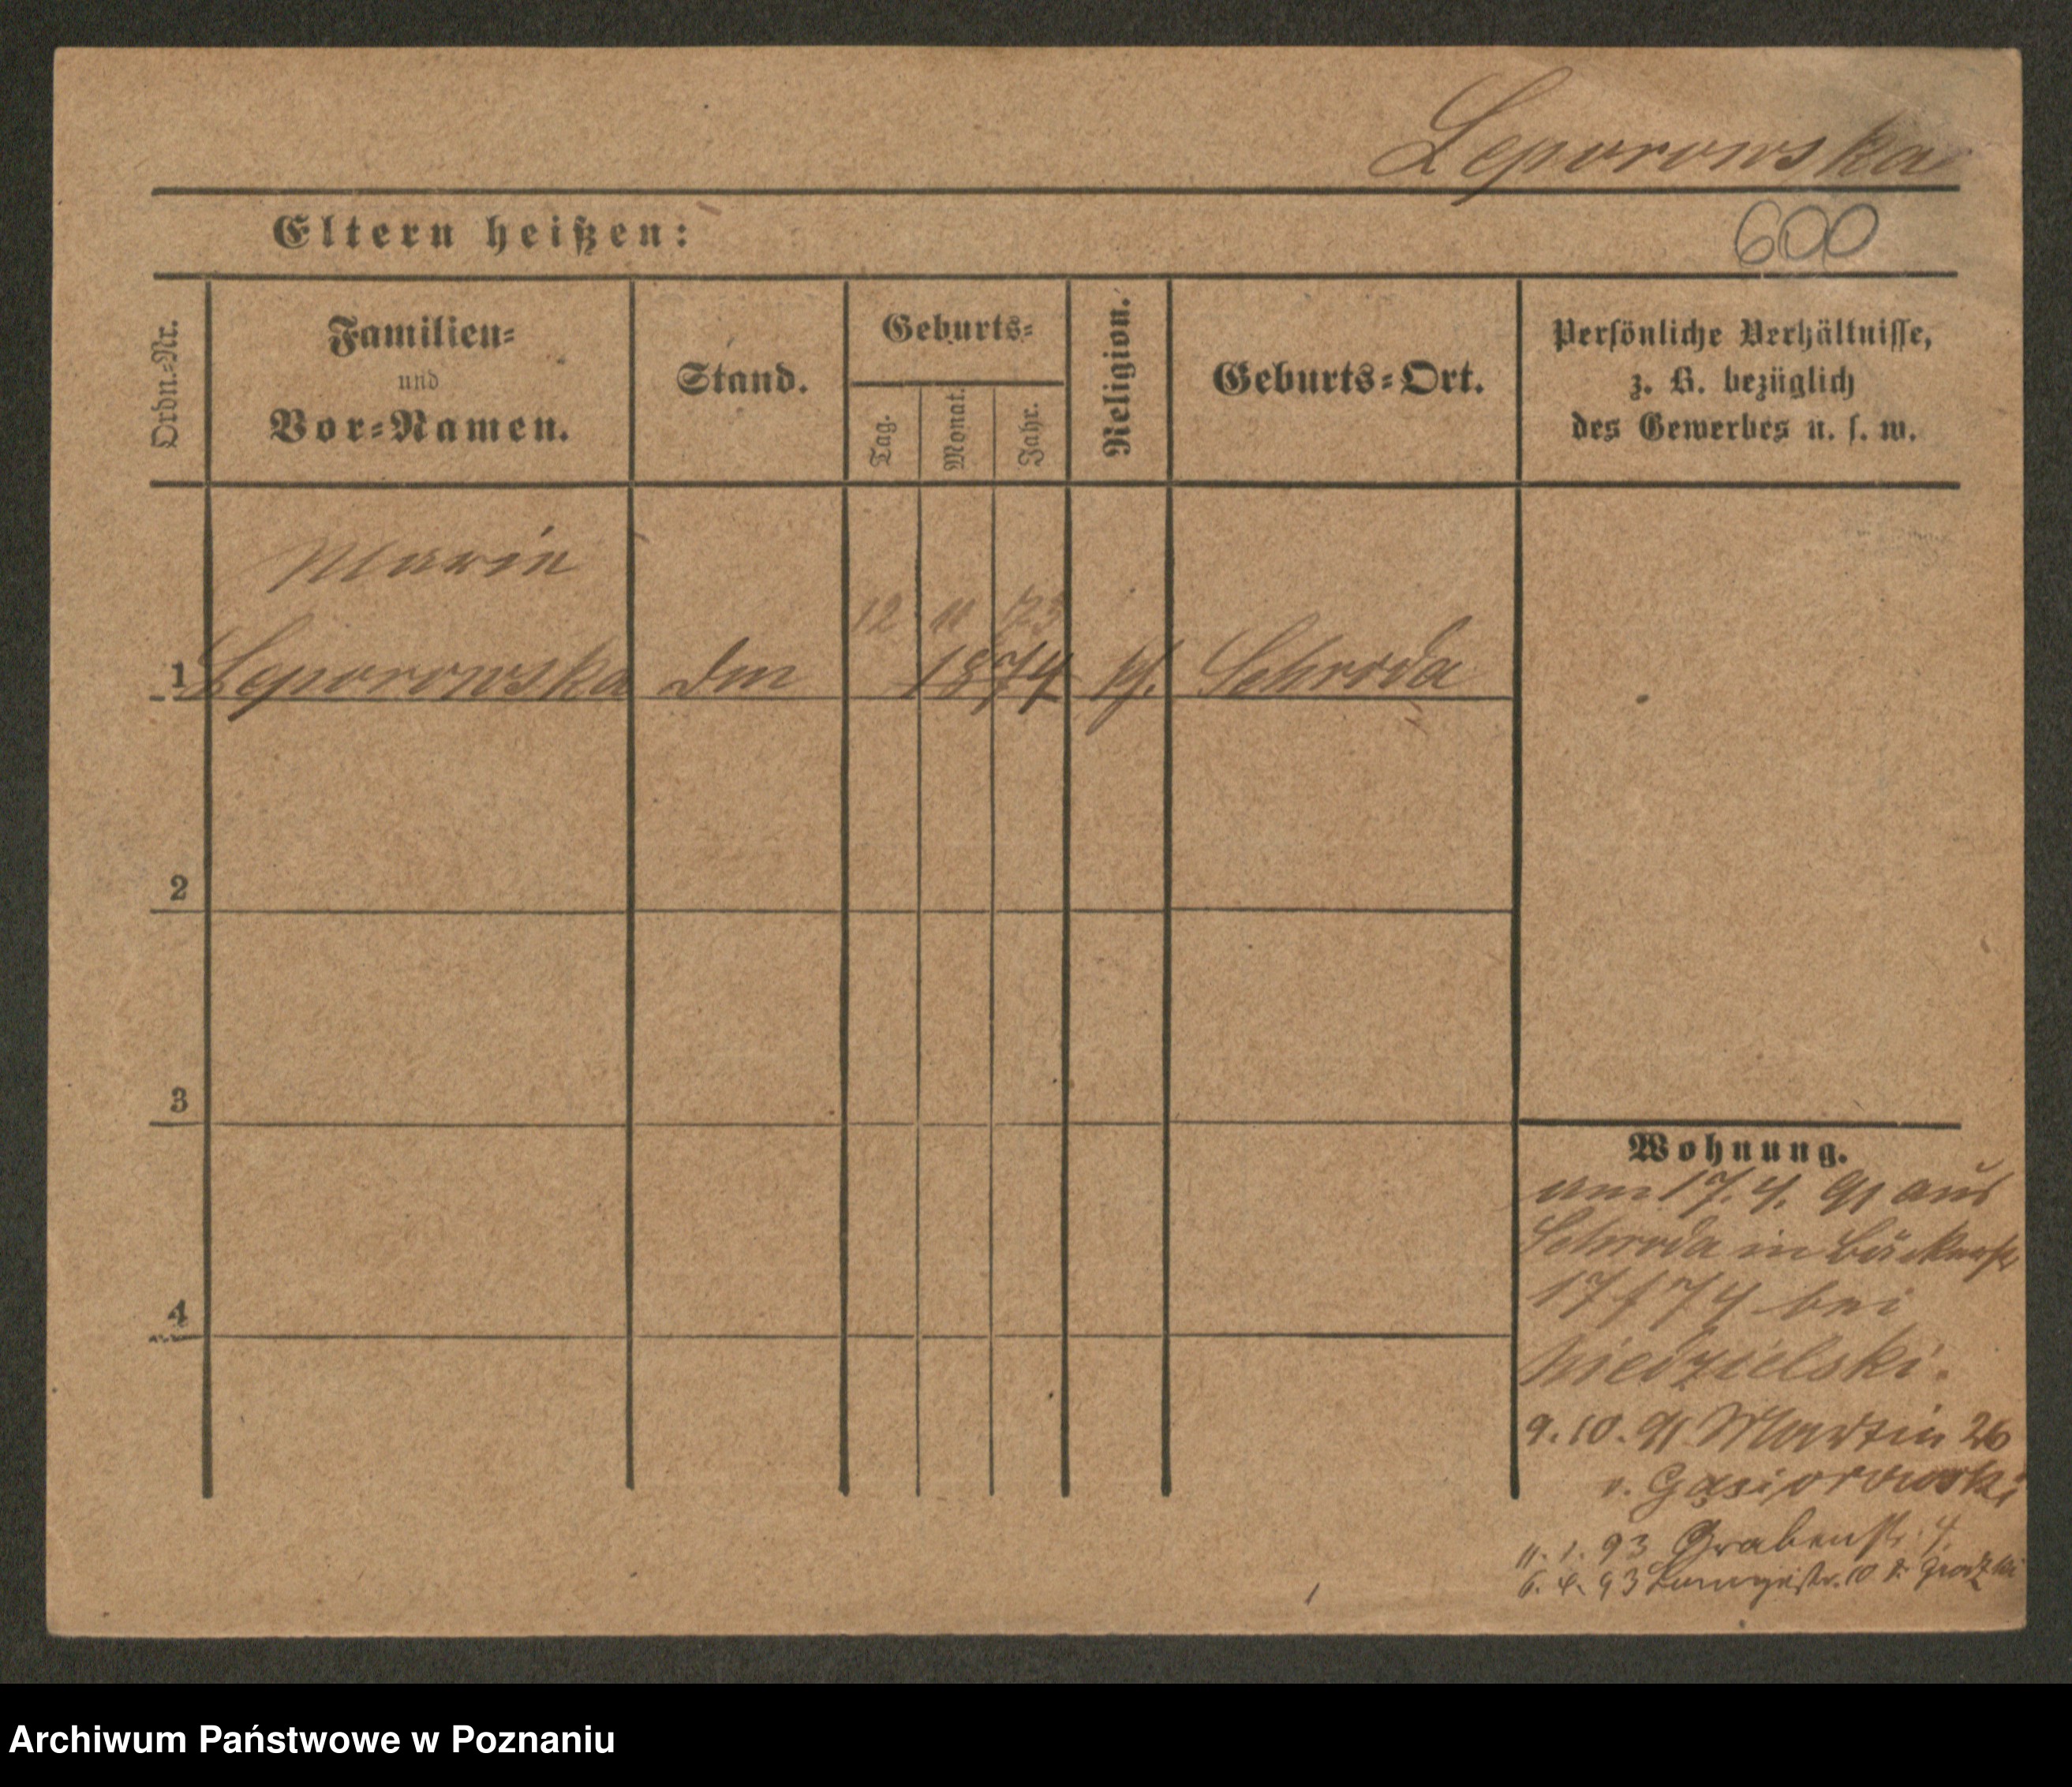 Leporowska
Eltern heißen:
600
Ordn.=Nr.
Familien=
und
Vor=Namen.
Stand.
Geburts=
Tag.
Monat.
Jahr.
Religion.
Geburts=Ort.
Persönliche Verhältnisse,
z. B. bezüglich
des Gewerbes u. s. w.
Marie
12 11 73
1 Leporowska Dm 1874 kf. Schroda
2
3
4
Wohnung.
am 17. 4. 91 aus
Schroda in Bäckerstr
17/74 bei
Niedzielski.
9. 10. 91 Martin 26
v. Gąsiorowski
11. 1. 93 Grabenstr. 4.
6. 4. 93 10
Archiwum Państwowe w Poznaniu